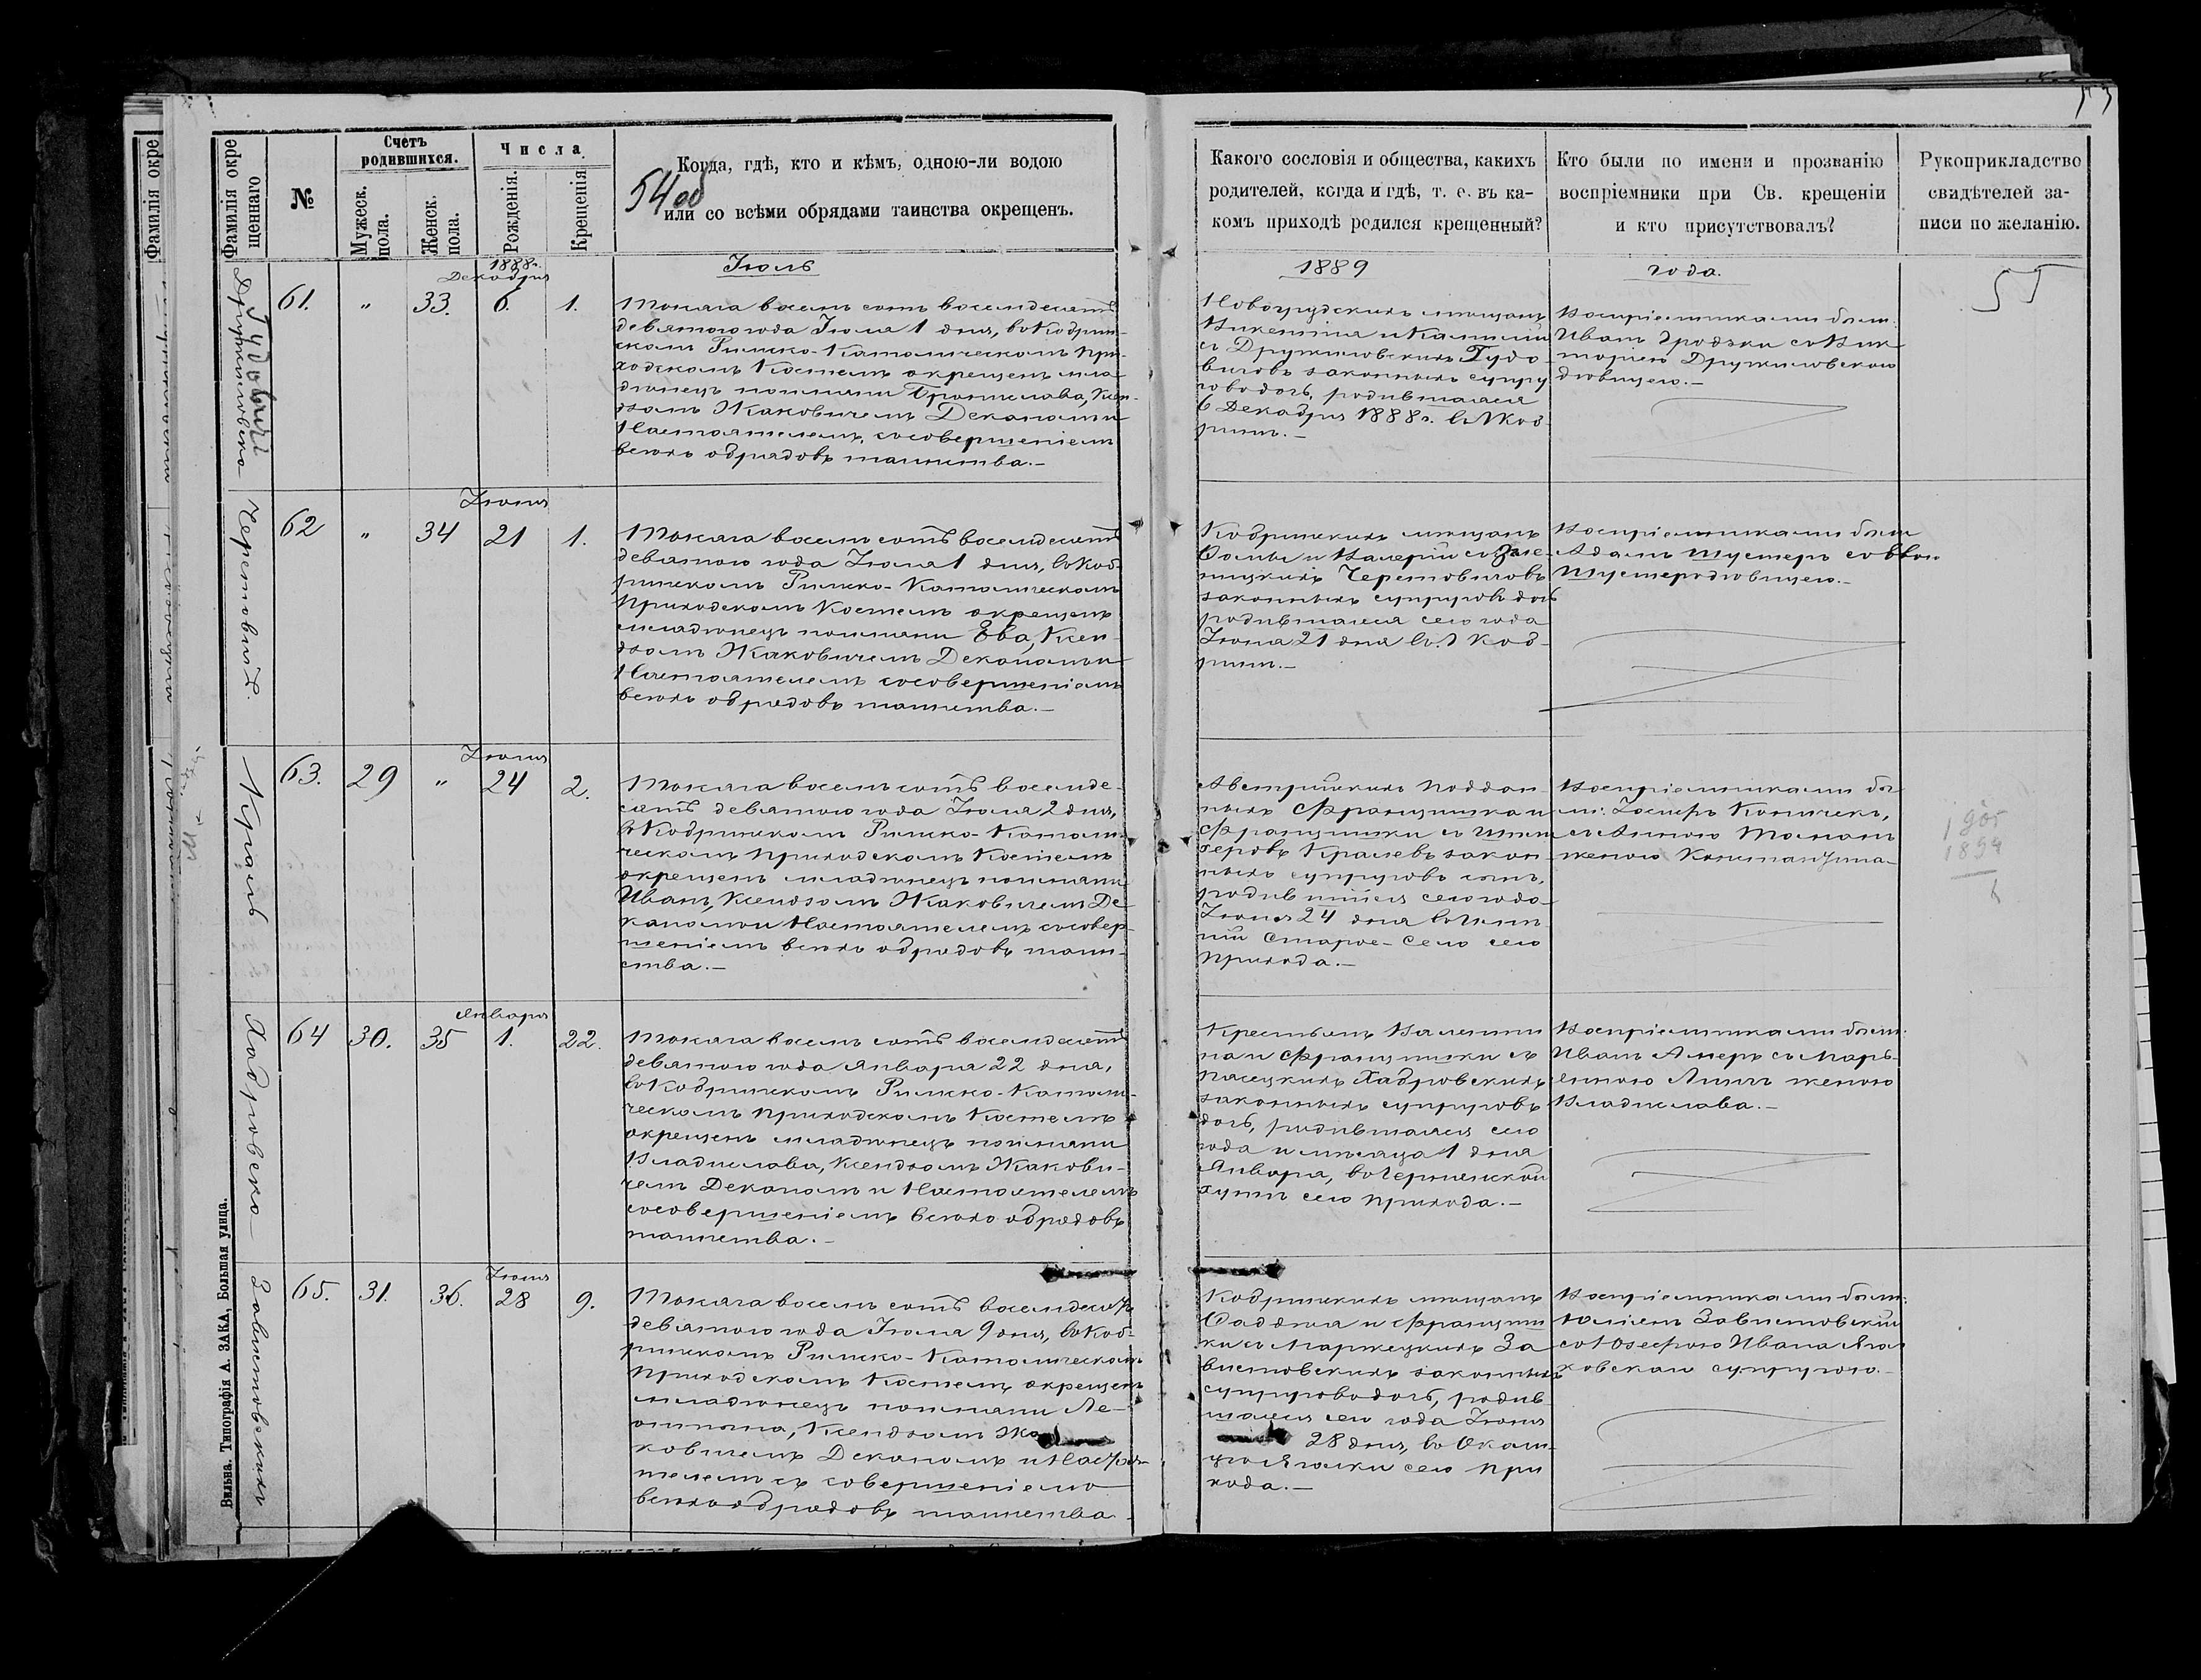 Фамилія окре
Фамилія окре
щеннаго
№
Счетъ
родившихся.
Мужеск.
пола.
Женск.
пола.
Числа
Рожденія.
Крещенія.
Когда, гдѣ, кто и кѣмъ, одною-ли водою
или со всѣми обрядами таинства окрещенъ.
54 об
Какого сословія и общества, какихъ
родителей, когда и гдѣ, т. е. въ ка-
комъ приходѣ родился крещенный?
Кто были по имени и прозванію
воспріемники при Св. крещеніи
и кто присутствовалъ?
Рукоприкладство
свидѣтелей за-
писи по желанію.
55
Іюль
1889
года.
Гудовичъ
61. " 33. 1888г. Декабря 6. 1.
Тысяча восемь сотъ восемдесятъ
девятого года Іюля 1 дня, въ Кобрин-
скомъ Римско-Католическомъ При-
ходскомъ Костелѣ окрещенъ мла-
дѣнецъ поимяни Бронислава, Ксен-
дзомъ Жаковичемъ Деканомъ и
Настоятелемъ, сосовершеніемъ
всѣхъ обрядовъ таинства.-
Викентія и Камилии
съ Дружиловскихъ Гудо-
вичовъ законныхъ супру-
говъ дочь, родившаяся
6 Декабря 1888г. въ г. Коб-
ринѣ.-
Воспріемниками были:
Иванъ Гродзки со Вик-
торіею Дружиловскою
дѣвицею.-
62 " 34 Іюня 21 1.
Тысяча восемь сотъ восемдесятъ
девятого года Іюля 1 дня, въ Коб-
ринскомъ Римско-Католическомъ
Приходскомъ Костелѣ окрещенъ
младѣнецъ поимяни Ева, Ксен-
дзомъ Жаковичемъ Деканомъ и
Настоятелемъ сосовершеніемъ
всѣхъ обрядовъ таинства.-
Кобринскихъ мѣщанъ
Фомы и Валеріи со
законныхъ супруговъ дочь
родившаяся сего года
Іюня 21 дня въ г. Коб-
ринѣ.-
Воспріемниками были
Адамъ Шустеръ со
Шустеръ дѣвицею.-
Краль
63. 29 " Іюня 24 2.
Тысяча восемь сотъ восемде-
сятъ девятого года Іюля 2 дня,
въ Кобринскомъ Римско-Католи-
ческомъ Приходскомъ Костелѣ
окрещенъ младѣнецъ поимяни
Иванъ, Ксендзомъ Жаковичемъ Де-
каномъ и Настоятелемъ сосовер-
шеніемъ всѣхъ обрядовъ таин-
ства.-
Австрійскихъ поддан-
ныхъ Францишка и
Францишки съ
Кралевъ закон-
ныхъ супруговъ сынъ,
родившійся сего года
Іюня 24 дня въ имѣ-
ніи Старое-Село сего
Прихода.-
Воспріемниками бы-
ли: Іосифъ
съ Анною
женою
1905
1894
Хадровска
64 30. 35 Января 1. 22.
Тысяча восемь сотъ восемдесятъ
девятого года Января 22 дня,
въ Кобринскомъ Римско-Католи-
ческомъ Приходскомъ Костелѣ
окрещенъ младѣнецъ поимяни
Владислава, Ксендзомъ Жакови-
чемъ Деканомъ и Настоятелемъ
сосовершеніемъ всѣхъ обрядовъ
таинства.-
Крестьянъ Валенти-
на и Францишки съ
Пясецкихъ Хадровскихъ
законныхъ супруговъ
дочь, родившаяся сего
года и мѣсяца 1 дня
Января, въ
сего Прихода.-
Воспріемниками были:
Иванъ съ Марь-
женою
Владислава.-
65. 31. 36. Іюня 28 9.
Тысяча восемь сотъ восемдесятъ
девятого года Іюля 9 дня, въ Коб-
ринскомъ Римско-Католическомъ
Приходскомъ Костелѣ окрещенъ
младѣнецъ поимяни Ле-
онтына, Ксендзомъ Жа-
ковичемъ Деканомъ и Настоя-
телемъ съ совершеніемъ
всѣхъ обрядовъ таинства
Кобринскихъ мѣщанъ
Фаддея и Францишки
съ За-
вистовскихъ законныхъ
супруговъ дочь, родив-
шаяся сего года Іюня
28 дня, въ
сего При-
хода.-
Воспріемниками были:
Завистовскій
со Іозефою Ивана
супругою.-
Вильна. Типографія А. ЗАКА, Большая улица.